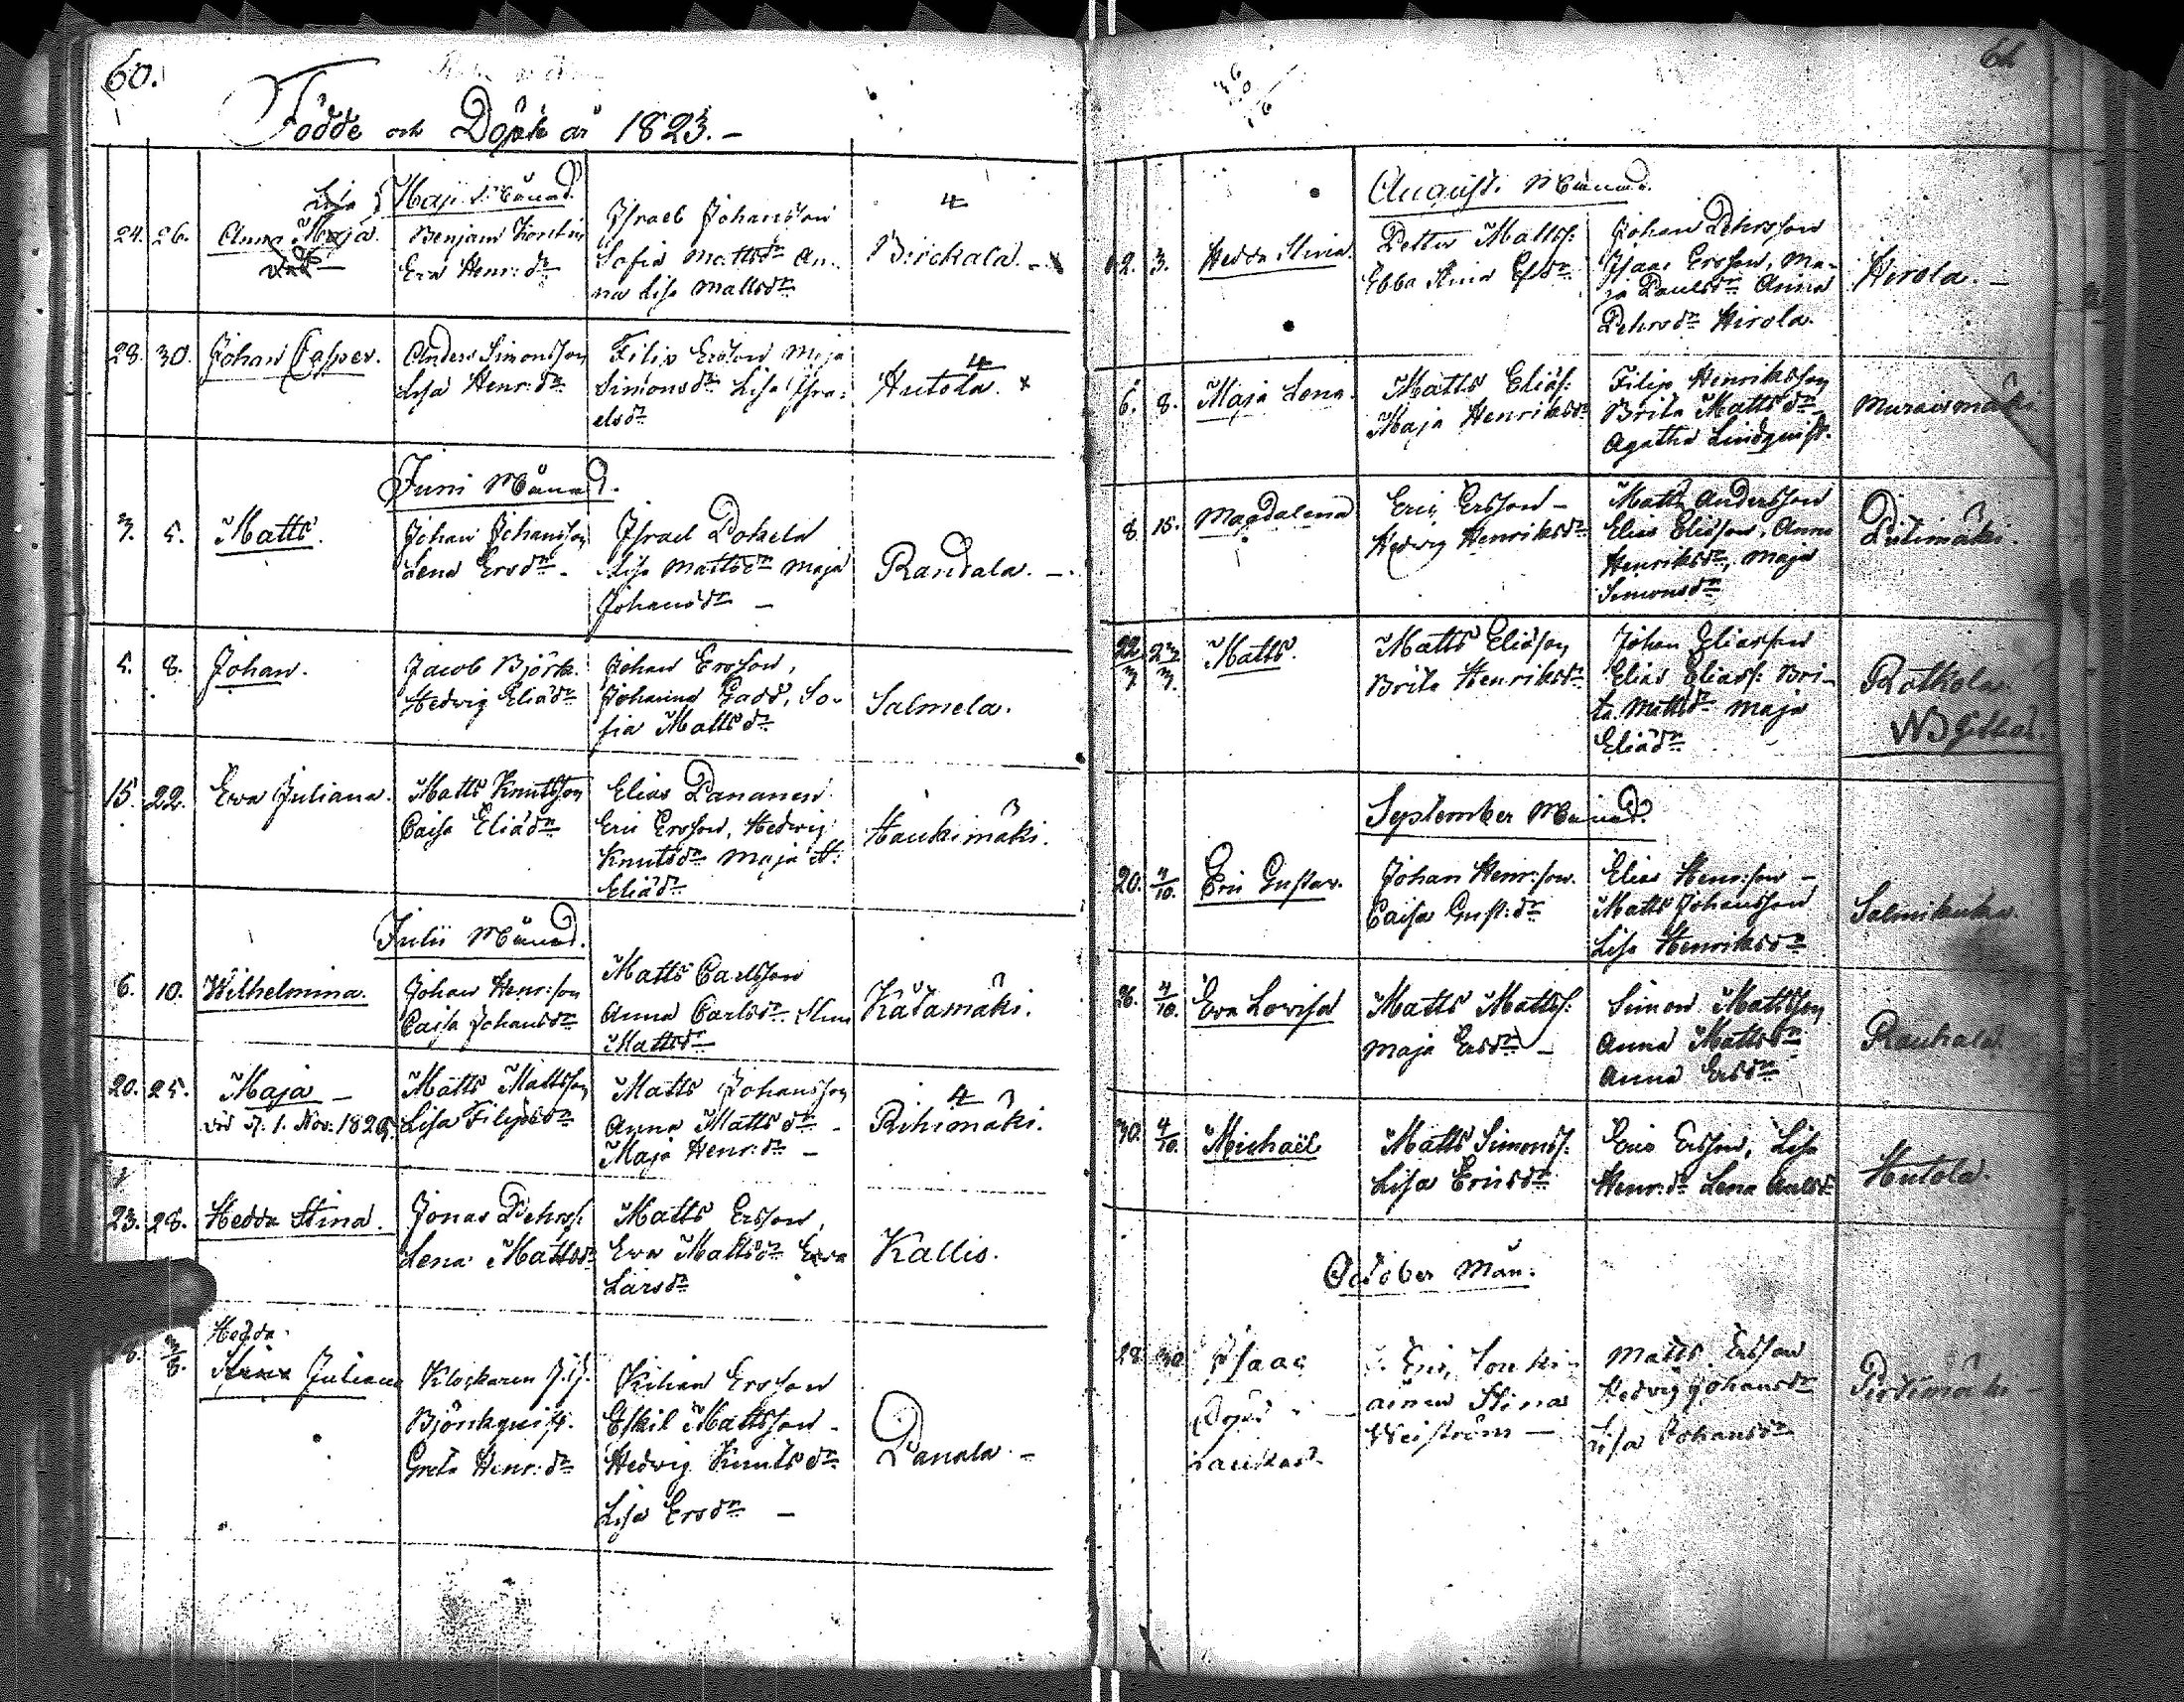 60.
Födde och Döpte år 1823.-
Maji Månad.
24. 26. Anna Maja.
Lisa
död
Benjam
Eva Henr: dr
Israel Johansson
Sofia Mattsdr An-
na Lisa Mattsdr
4
Birckala.
28. 30. Johan Casper.
Anders Simonsson
Lisa Henr: dr
Filip Ersson Maja
Simonsdr Lisa Isra-
elsdr
4
Hutola. x
Juni Månad.
3. 5. Matts.
Johan Johansson
Lena Ersdr.
Israel Pokela
Lisa Mattsdr Maja
Johansdr -
Randala. -
5. 8. Johan.
Jacob Björk.
Hedvig Eliædr
Johan Ersson,
Johanna Gadd, So-
fia Mattsdr
Salmela.
15. 22. Eva Juliana.
Matts Knutsson
Caisa Eliædr
Elias Pananen
Eric Ersson, Hedvig
Knutsdr Maja St:
Eliædr
Haukimäki.
Julii Månad.
6. 10. Wilhelmina.
Johan Henr:son
Caisa Johansdr
Matts Carlsson
Anna Carlsdr Stina
Mattsdr
Katamäki.
20. 25. Maja -
död d. 1. Nov: 1829.
Matts Mattsson
Lisa Filipsdr
Matts Johansson
Anna Mattsdr
Maja Henr: dr -
4
Rihimäki.
23. 28. Hedda Stina.
Jonas Pehrss.
Lena Mattsdr
Matts Ersson,
Eva Mattsdr Eva
Larsdr
Kallis.
3/8.
Hedda
Stina Juliana
Klockaren J.J.
Björkquist.
Greta Henr: dr
Kilian Ersson
Eskil Mattsson
Hedvig Knutsdr
Lisa Ersdr -
Panala -
61
August. Månad.
2. 3. Hedda Stina.
Petter Mattss:
Ebba Stina Efsdr
Johan Pehrsson
Isaac Ersson, Ma-
ja Paulsdr Anna
Pehrsdr Hirola.
Hirola. -
6. 8. Maja Lena.
Matts Eliæs:
Maja Henriksdr
Filip Henriksson
Brita Mattsdr
Agatha Lindquist.
Muraismäki
8. 15. Magdalena
Eric Ersson -
Hedvig Henriksdr
Matts Andersson
Elias Eliæson, Anna
Henriksdr, Maja
Simonsdr
Pitimäki.
22/7 27/7 Matts.
Matts Eliæson
Brita Henriksdr
Johan Eliasson
Elias Eliass: Bri-
ta Mattsdr Maja
Eliædr
Rotkola.
NB
September Månad.
20. 4/10. Eric Gustav.
Johan Henr:son.
Caisa Gust: dr
Elias Henr:son -
Matts Johansson
Lisa Henriksdr
Salmikuka.
26. 4/10. Eva Lovisa
Matts Mattss:
Maja Ersdr -
Simon Mattsson
Anna Mattsdr
Anna Ersdr
Rauhala.
30. 4/10. Michaël
Matts Simonss:
Lisa Ericsdr
Eric Ersson, Lisa
Henr: dr Lena
Hutola.
October Mån:
28. 30. Isaac
Eric, Louki-
ainen Stina
Weiström -
Matts Ersson
Hedvig Johansdr
Lisa Johansdr